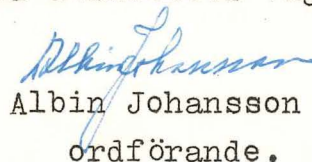 Albin Johansson
Albin Johansson
ordförande.